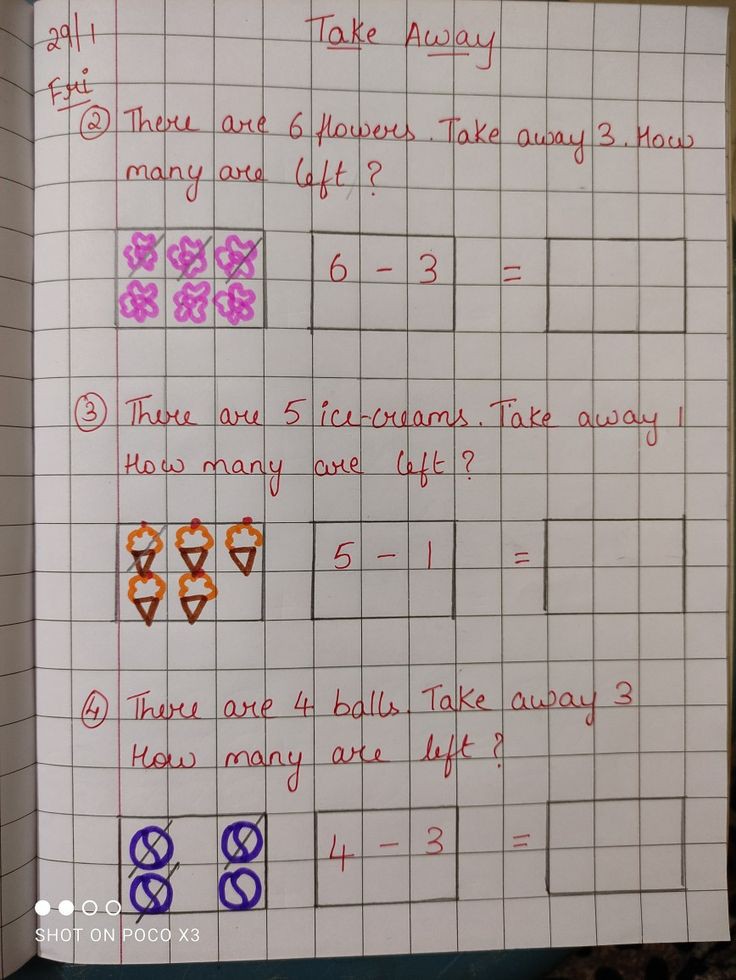 29/1 Take Away
Fri
② There are 6 flowers. Take away 3. How
many are left?
6 - 3 =
③ There are 5 ice-creams. Take away 1
How many are left?
5 - 1 =
④ There are 4 balls. Take away 3
How many are left?
4 - 3 =
SHOT ON POCO X3